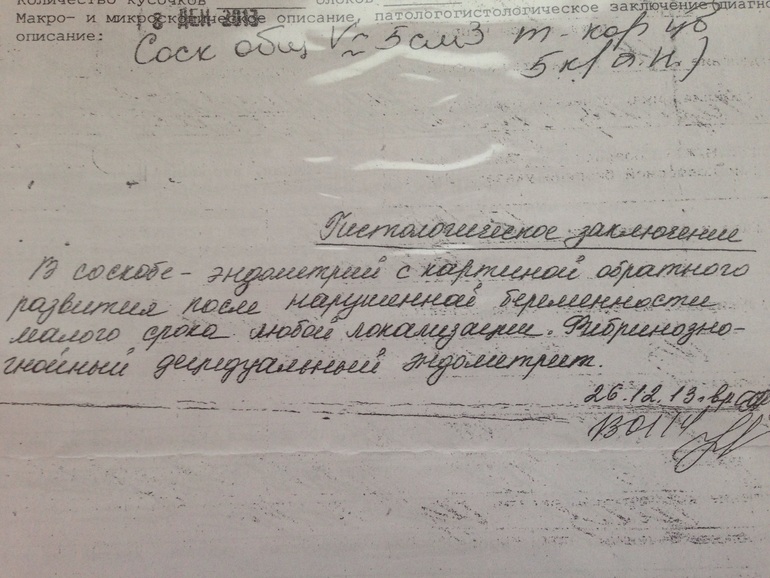 Количество кусочков блоков
Макро- и микроскопическое описание, патологогистологическое заключение (диагно
описание:
18 ДЕК 2013
Соск общ V ≈ 5 см3 т-кор цв
5 к/
Гистологическое заключение
В соскобе - эндометрий с картиной обратного
развития после нарушенной беременности
малого срока любой локализации. Фибринозно-
гнойный децидуальный эндометрит.
26.12.13. вр